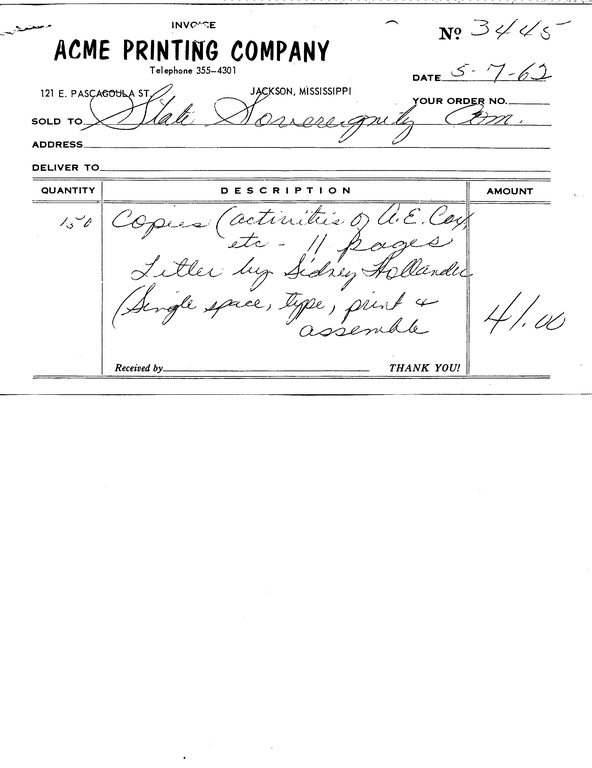 INVOICE
Nº 3445
ACME PRINTING COMPANY
Telephone 355-4301
DATE 5-7-62
121 E. PASCAGOULA ST. JACKSON, MISSISSIPPI
YOUR ORDER NO.
SOLD TO State Sovereignity Com.
ADDRESS
DELIVER TO
QUANTITY DESCRIPTION AMOUNT
150 Copies (activities of A.E. Cox,
etc - 11 pages
Letter by Sidney Hollander
(Single space, type, print &
assemble 41.00
Received by THANK YOU!